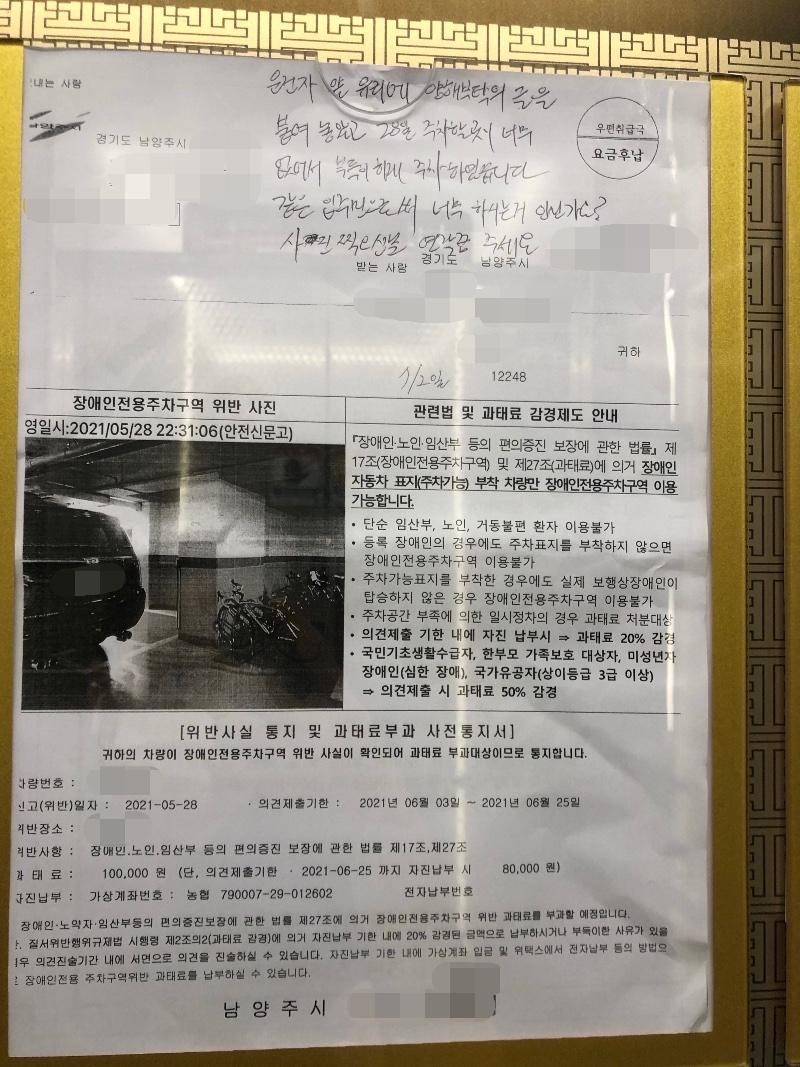 운전자 앞 유리에 양해부탁의 글을
붙여 놓았고 28일 주차할곳이 너무
없어서 부득이하게 주차 하였습니다
같은 입주민으로서 너무 하시는거 아닌가요?
사진 찍으신날 연락좀 주세요
보내는 사람
남양주시
경기도 남양주시
우편취급국
요금후납
받는 사람 경기도 남양주시
귀하
12248
장애인전용주차구역 위반 사진
영일시:2021/05/28 22:31:06(안전신문고)
관련법 및 과태료 감경제도 안내
『장애인·노인·임산부 등의 편의증진 보장에 관한 법률』 제
17조(장애인전용주차구역) 및 제27조(과태료)에 의거 장애인
자동차 표지(주차가능) 부착 차량만 장애인전용주차구역 이용
가능합니다.
• 단순 임산부, 노인, 거동불편 환자 이용불가
• 등록 장애인의 경우에도 주차표지를 부착하지 않으면
장애인전용주차구역 이용불가
• 주차가능표지를 부착한 경우에도 실제 보행상장애인이
탑승하지 않은 경우 장애인전용주차구역 이용불가
• 주차공간 부족에 의한 일시정차의 경우 과태료 처분대상
• 의견제출 기한 내에 자진 납부시 ⇒ 과태료 20% 감경
• 국민기초생활수급자, 한부모 가족보호 대상자, 미성년자
장애인(심한 장애), 국가유공자(상이등급 3급 이상)
⇒ 의견제출 시 과태료 50% 감경
[위반사실 통지 및 과태료부과 사전통지서]
귀하의 차량이 장애인전용주차구역 위반 사실이 확인되어 과태료 부과대상이므로 통지합니다.
차량번호 :
신고(위반)일자 : 2021-05-28 · 의견제출기한 : 2021년 06월 03일 ~ 2021년 06월 25일
위반장소 :
위반사항 : 장애인.노인.임산부 등의 편의증진 보장에 관한 법률 제17조,제27조
과 태 료 : 100,000 원 (단, 의견제출기한 · 2021-06-25 까지 자진납부 시 80,000 원)
자진납부 : 가상계좌번호 : 농협 790007-29-012602 전자납부번호
장애인·노약자·임산부등의 편의증진보장에 관한 법률 제27조에 의거 장애인전용주차구역 위반 과태료를 부과할 예정입니다.
. 질서위반행위규제법 시행령 제2조의2(과태료 감경)에 의거 자진납부 기한 내에 20% 감경된 금액으로 납부하시거나 부득이한 사유가 있을
경우 의견진술기간 내에 서면으로 의견을 진술하실 수 있습니다. 자진납부 기한 내에 가상계좌 입금 및 위택스에서 전자납부 등의 방법으
로 장애인전용 주차구역위반 과태료를 납부하실 수 있습니다.
남 양 주 시